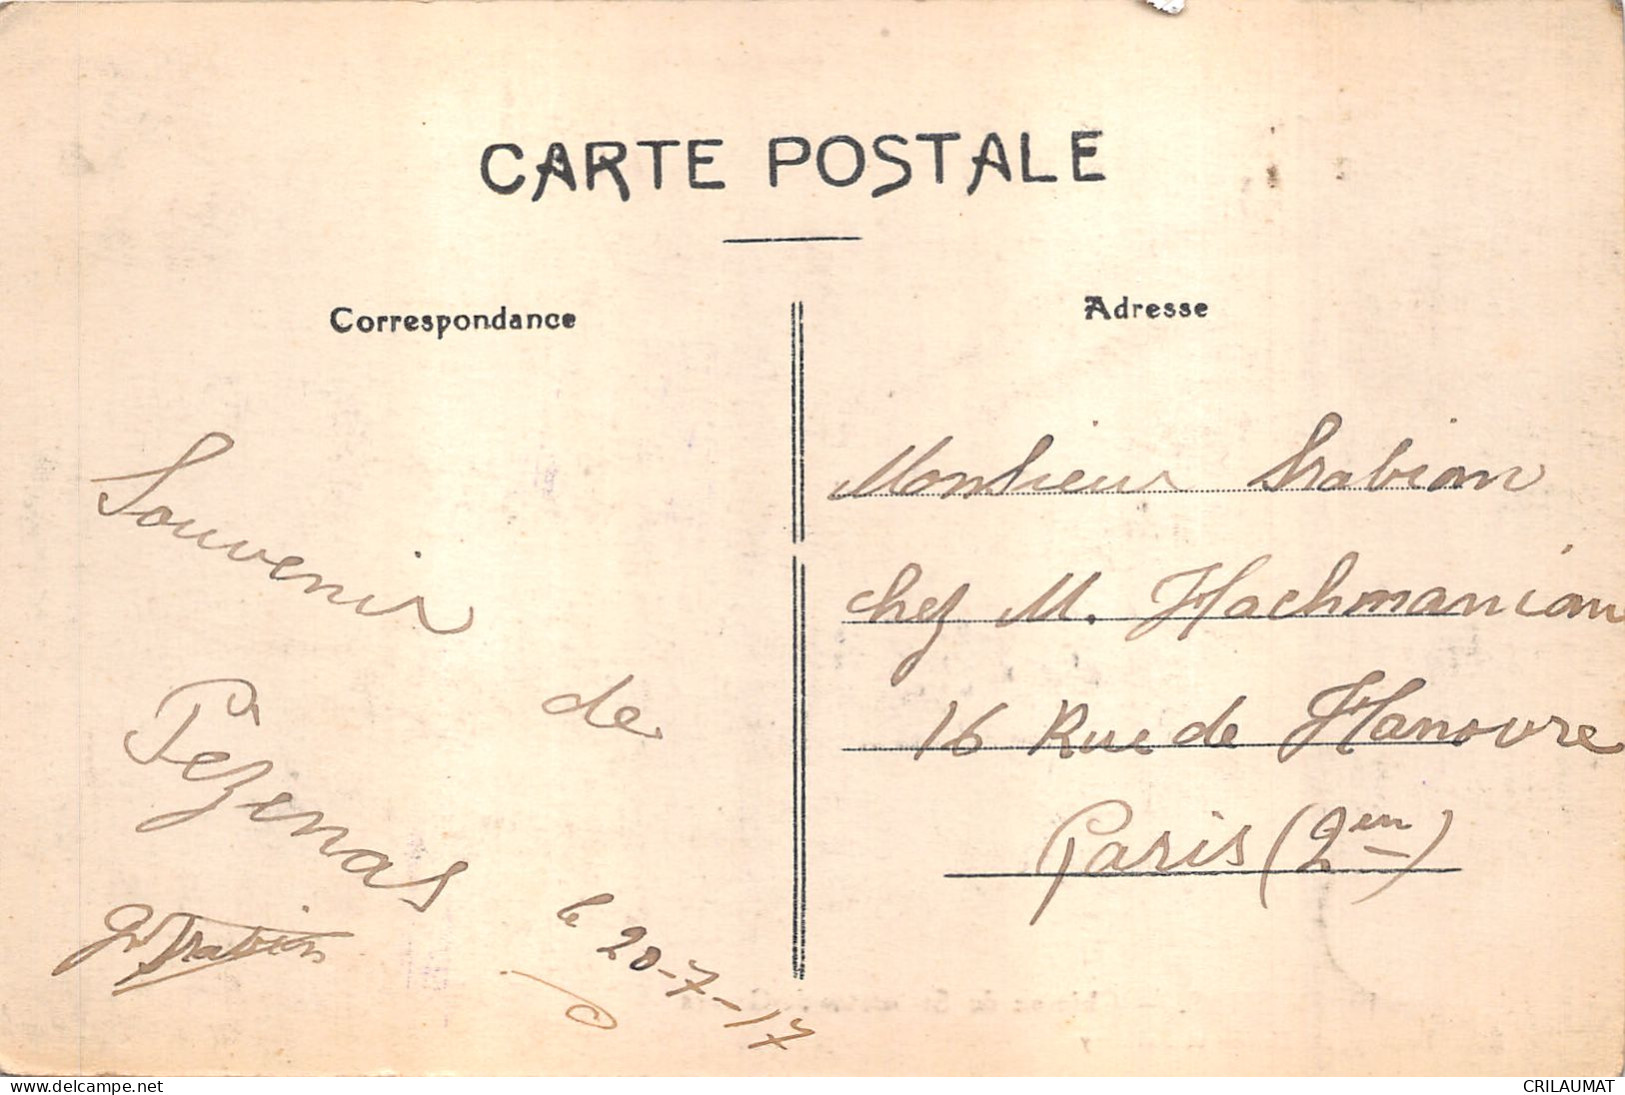 CARTE POSTALE
Correspondance
Souvenir
de
Pézenas
le 20-7-17
Adresse
Monsieur Srabian
chez M. Hachmanian
16 Rue de Hanovre
Paris (2en)
www.delcampe.net
CRILAUMAT